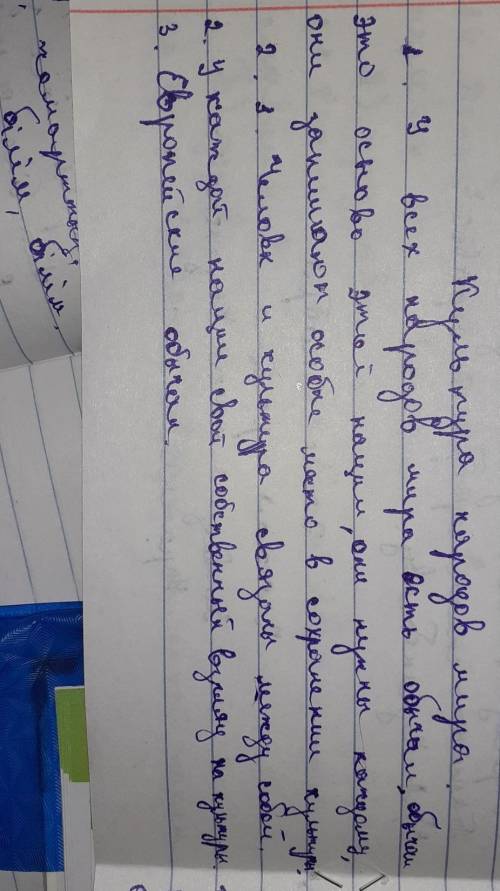 Культура народов мира.
1. У всех народов мира есть обычаи, обычаи
это основа этой нации, они нужны каждому,
они занимают особые место в сохранении культуры.
2. 1. Человек и культура связаны между собой.
2. У каждой нации свой собственный взгляд на культуры.
3. Европейские обычаи.
білім, білім,